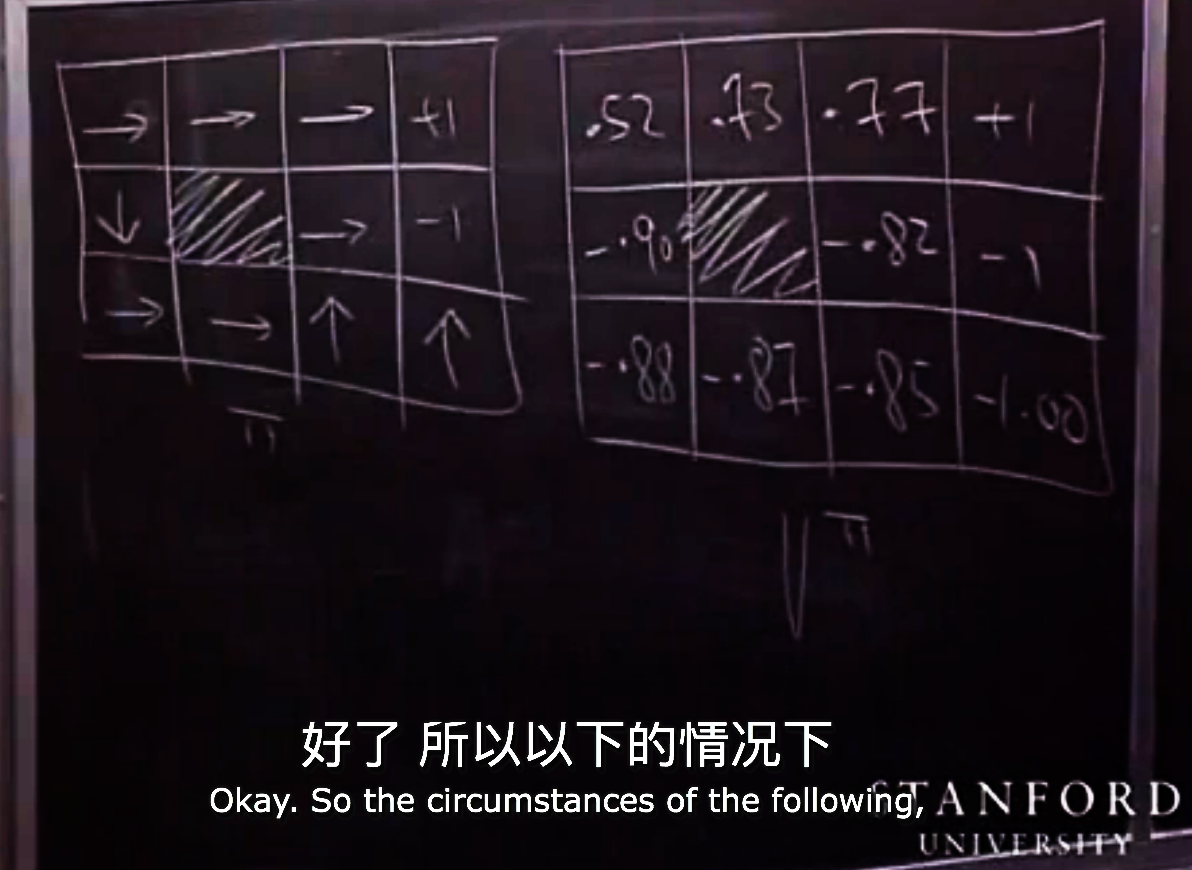 → → → +1
↓ → -1
→ → ↑ ↑
π
.52 .73 .77 +1
-.90 -.82 -1
-.88 -.87 -.85 -1.00
V^π
好了 所以以下的情况下
Okay. So the circumstances of the following,
STANFORD
UNIVERSITY